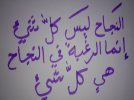 النجاح ليسَ كلّ شيء
إنما الرغبة في النجاح
هي كلّ شيئ